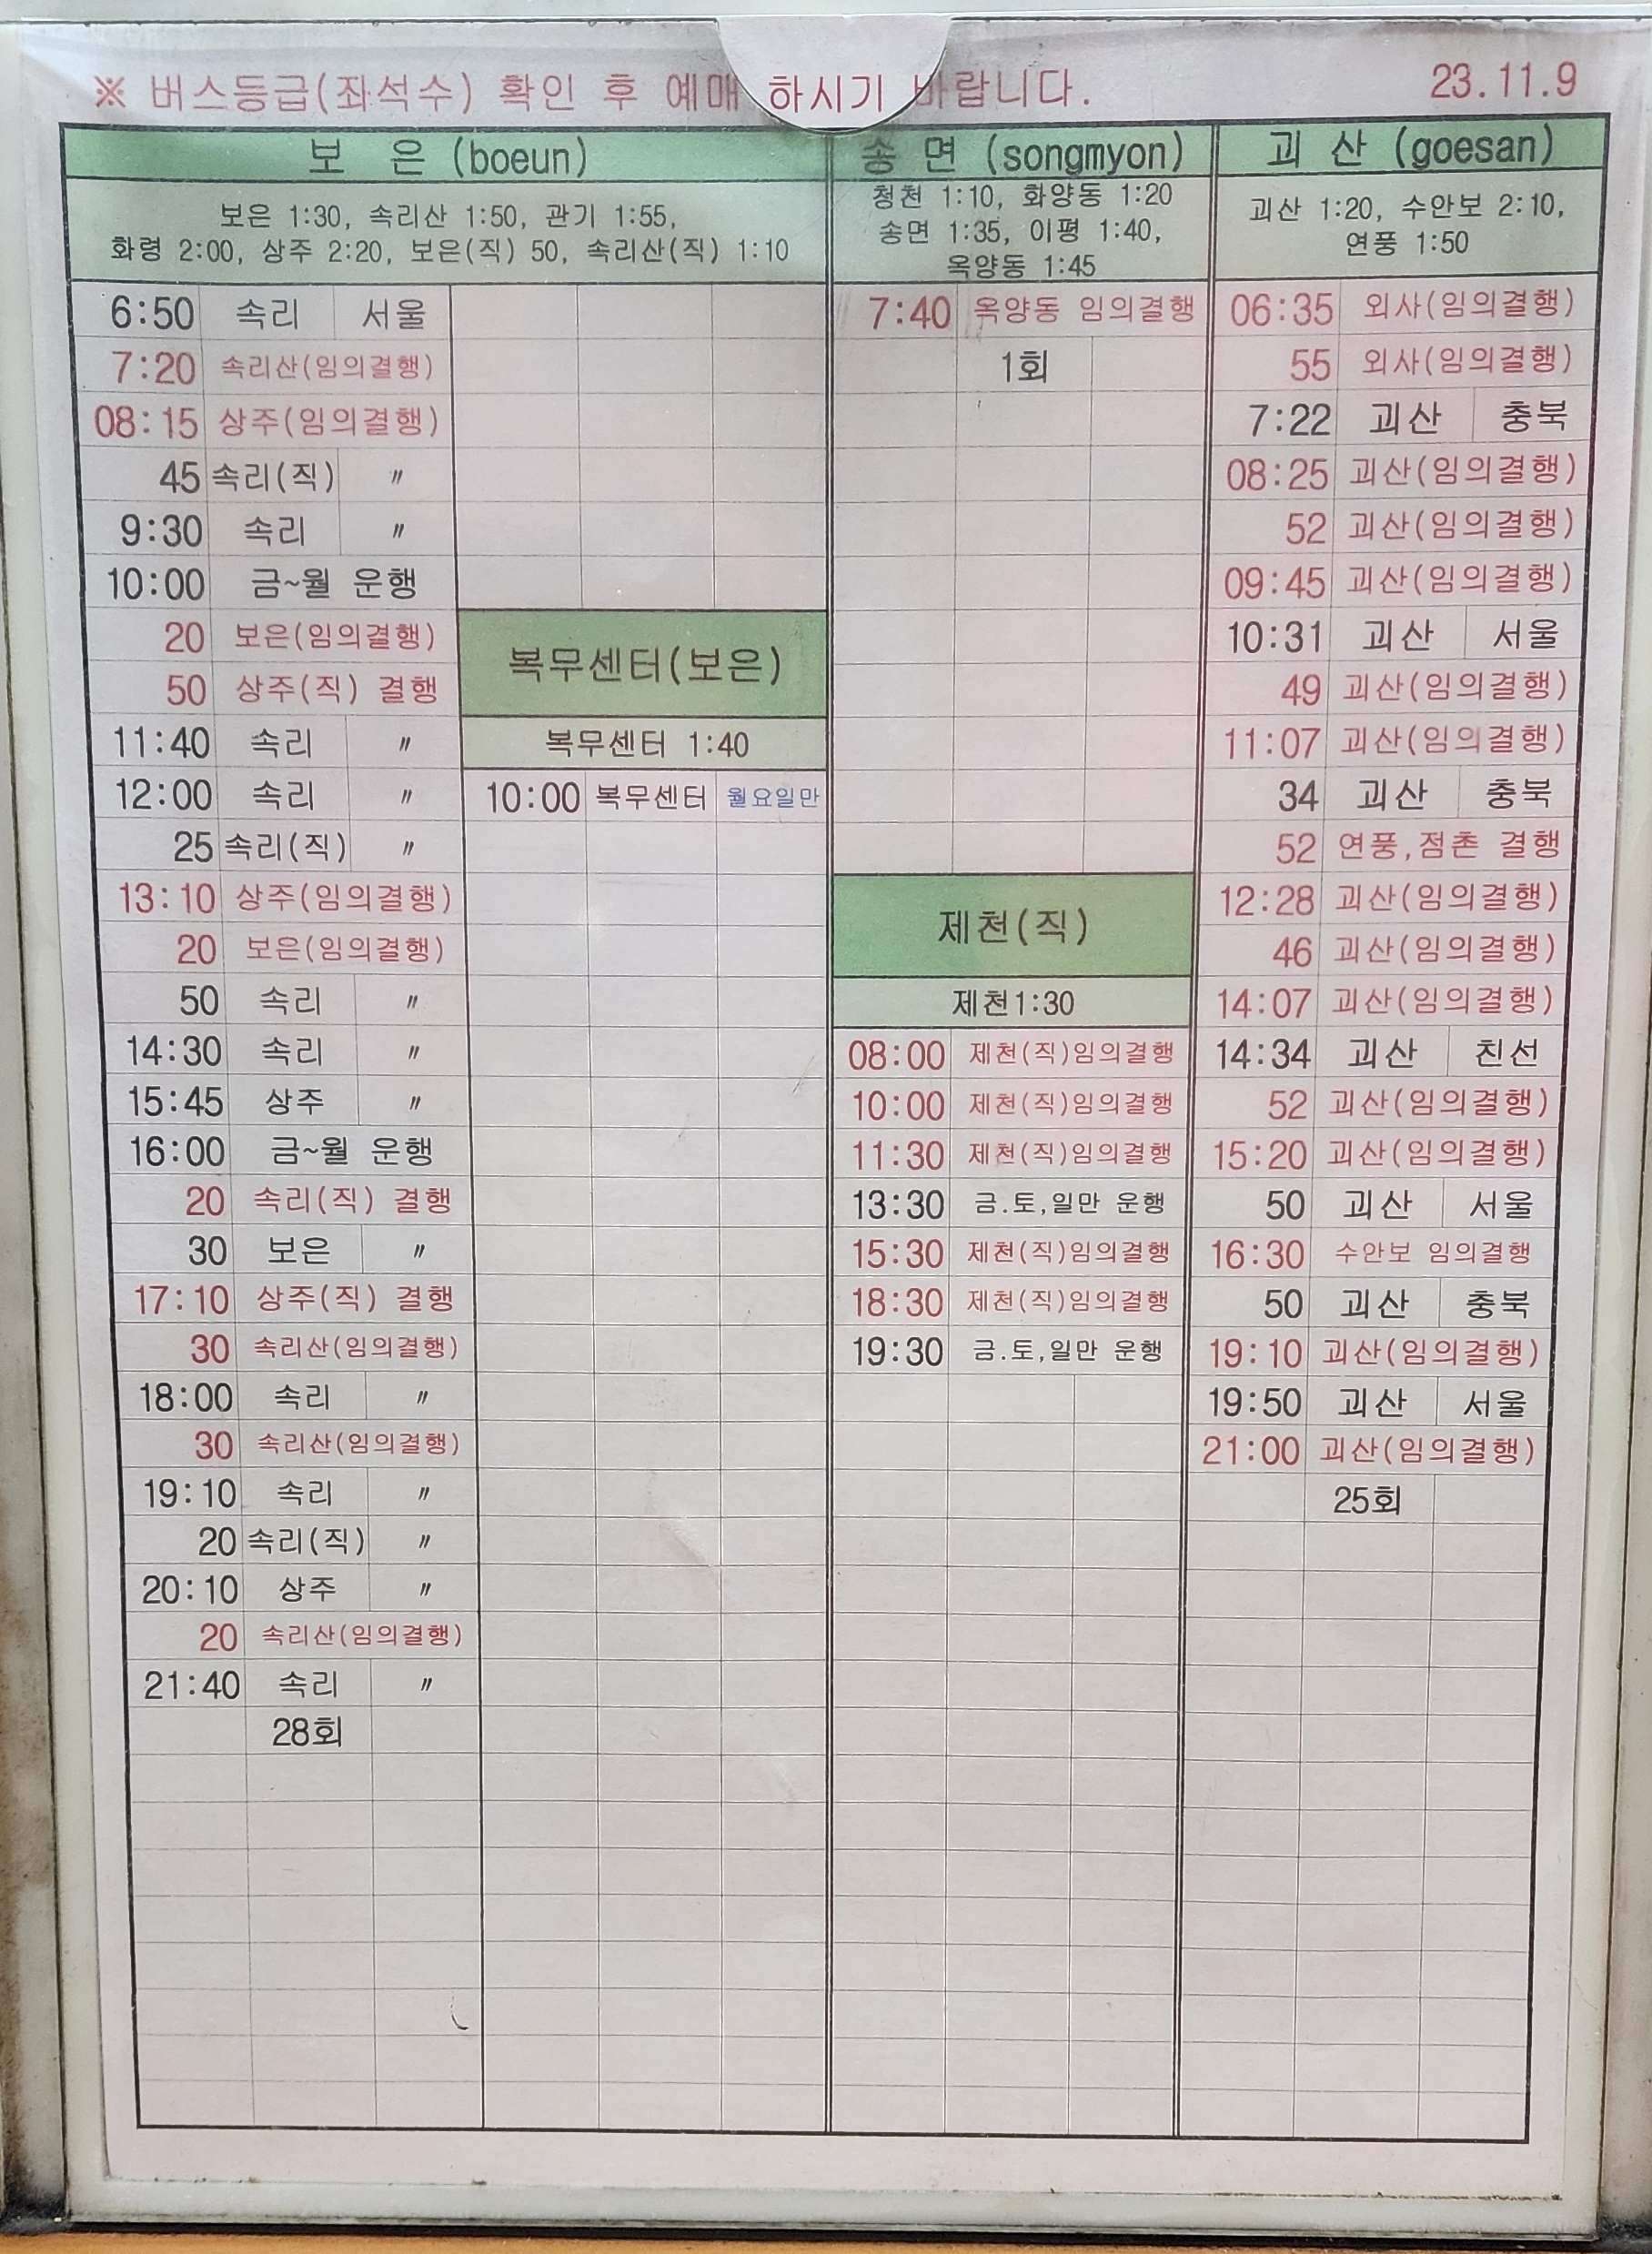 ※ 버스등급(좌석수) 확인 후 예매 하시기 바랍니다. 23.11.9
보 은 (boeun)
보은 1:30, 속리산 1:50, 관기 1:55,
화령 2:00, 상주 2:20, 보은(직) 50, 속리산(직) 1:10
6:50 속리 서울
7:20 속리산(임의결행)
08:15 상주(임의결행)
45 속리(직) 〃
9:30 속리 〃
10:00 금~월 운행
20 보은(임의결행)
50 상주(직) 결행
11:40 속리 〃
12:00 속리 〃
25 속리(직) 〃
13:10 상주(임의결행)
20 보은(임의결행)
50 속리 〃
14:30 속리 〃
15:45 상주 〃
16:00 금~월 운행
20 속리(직) 결행
30 보은 〃
17:10 상주(직) 결행
30 속리산(임의결행)
18:00 속리 〃
30 속리산(임의결행)
19:10 속리 〃
20 속리(직) 〃
20:10 상주 〃
20 속리산(임의결행)
21:40 속리 〃
28회
복무센터(보은)
복무센터 1:40
10:00 복무센터 월요일만
송 면 (songmyon)
청천 1:10, 화양동 1:20
송면 1:35, 이평 1:40,
옥양동 1:45
7:40 옥양동 임의결행
1회
제천(직)
제천1:30
08:00 제천(직)임의결행
10:00 제천(직)임의결행
11:30 제천(직)임의결행
13:30 금.토,일만 운행
15:30 제천(직)임의결행
18:30 제천(직)임의결행
19:30 금.토,일만 운행
괴 산 (goesan)
괴산 1:20, 수안보 2:10,
연풍 1:50
06:35 외사(임의결행)
55 외사(임의결행)
7:22 괴산 충북
08:25 괴산(임의결행)
52 괴산(임의결행)
09:45 괴산(임의결행)
10:31 괴산 서울
49 괴산(임의결행)
11:07 괴산(임의결행)
34 괴산 충북
52 연풍,점촌 결행
12:28 괴산(임의결행)
46 괴산(임의결행)
14:07 괴산(임의결행)
14:34 괴산 친선
52 괴산(임의결행)
15:20 괴산(임의결행)
50 괴산 서울
16:30 수안보 임의결행
50 괴산 충북
19:10 괴산(임의결행)
19:50 괴산 서울
21:00 괴산(임의결행)
25회